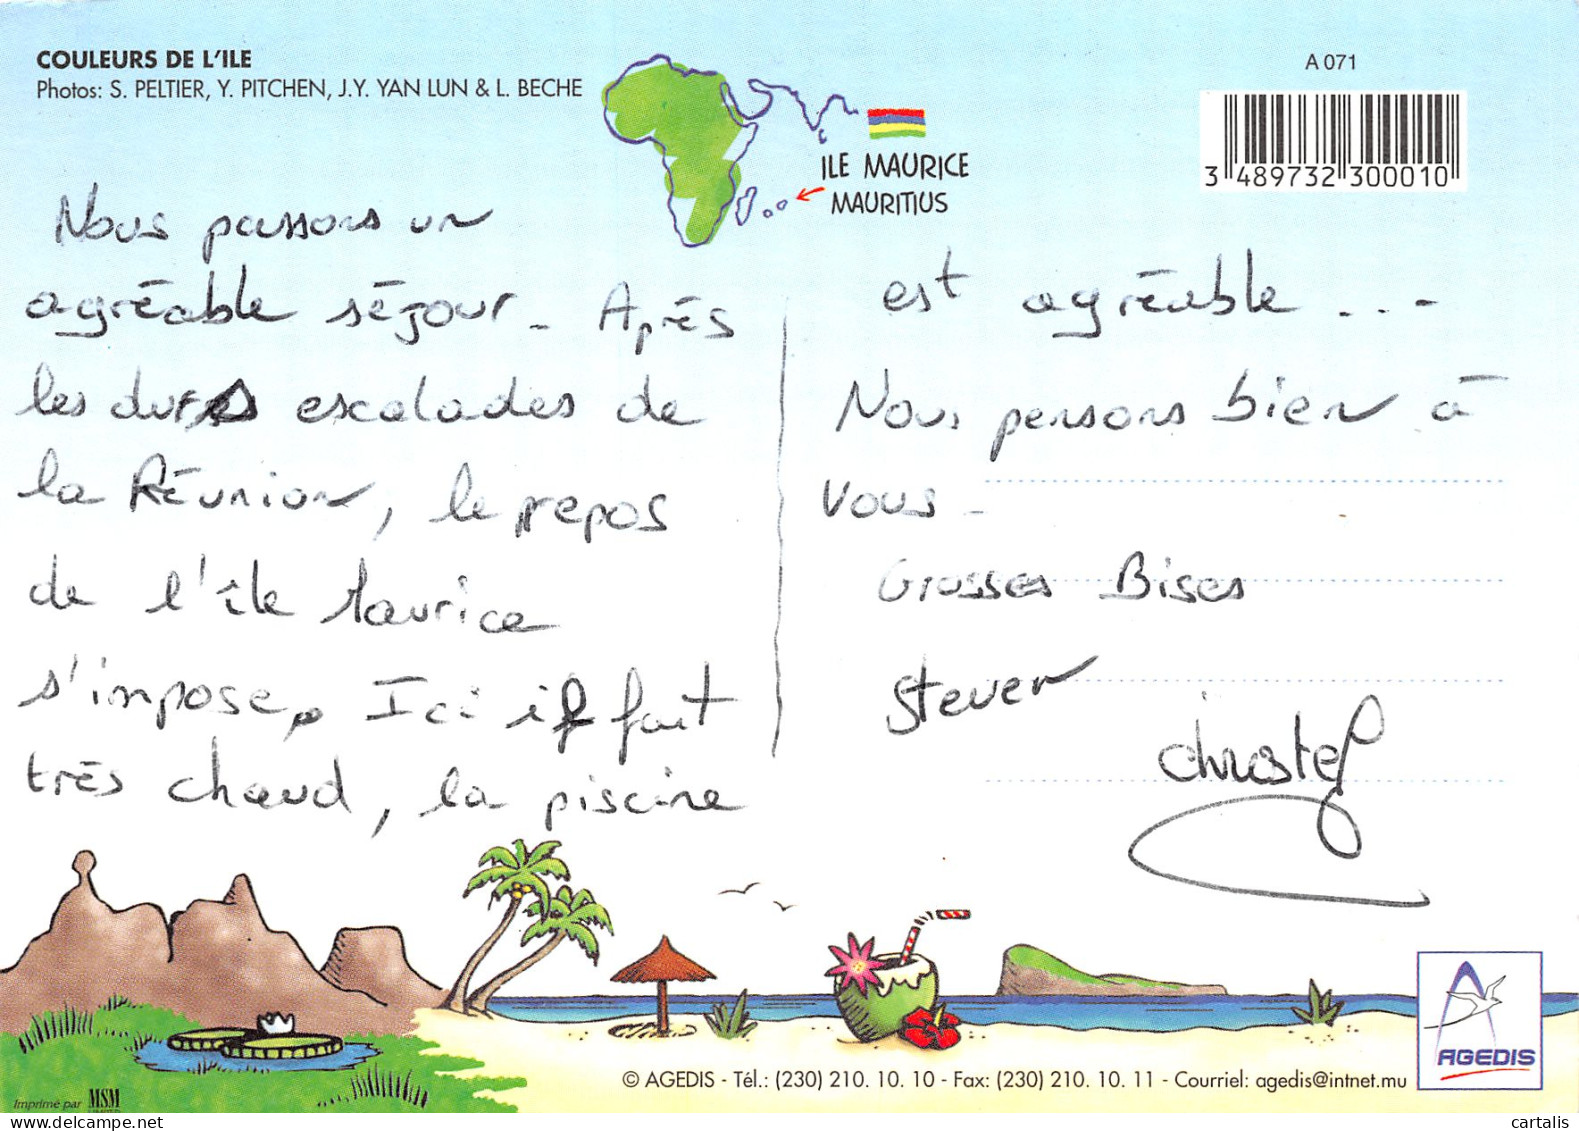 COULEURS DE L'ILE
Photos: S. PELTIER, Y. PITCHEN, J.Y. YAN LUN & L. BECHE
ILE MAURICE
MAURITIUS
A 071
3 489732 300010
Nous passons un
agréable séjour. Après
les dures escalades de
la Réunion, le repos
de l'île Maurice
s'impose. Ici il fait
très chaud, la piscine
est agréable...
Nous pensons bien à
vous.
Grosses Bises
Steven
Christel
AGEDIS
© AGEDIS - Tél.: (230) 210. 10. 10 - Fax: (230) 210. 10. 11 - Courriel: agedis@intnet.mu
Imprimé par MSM
cartalis